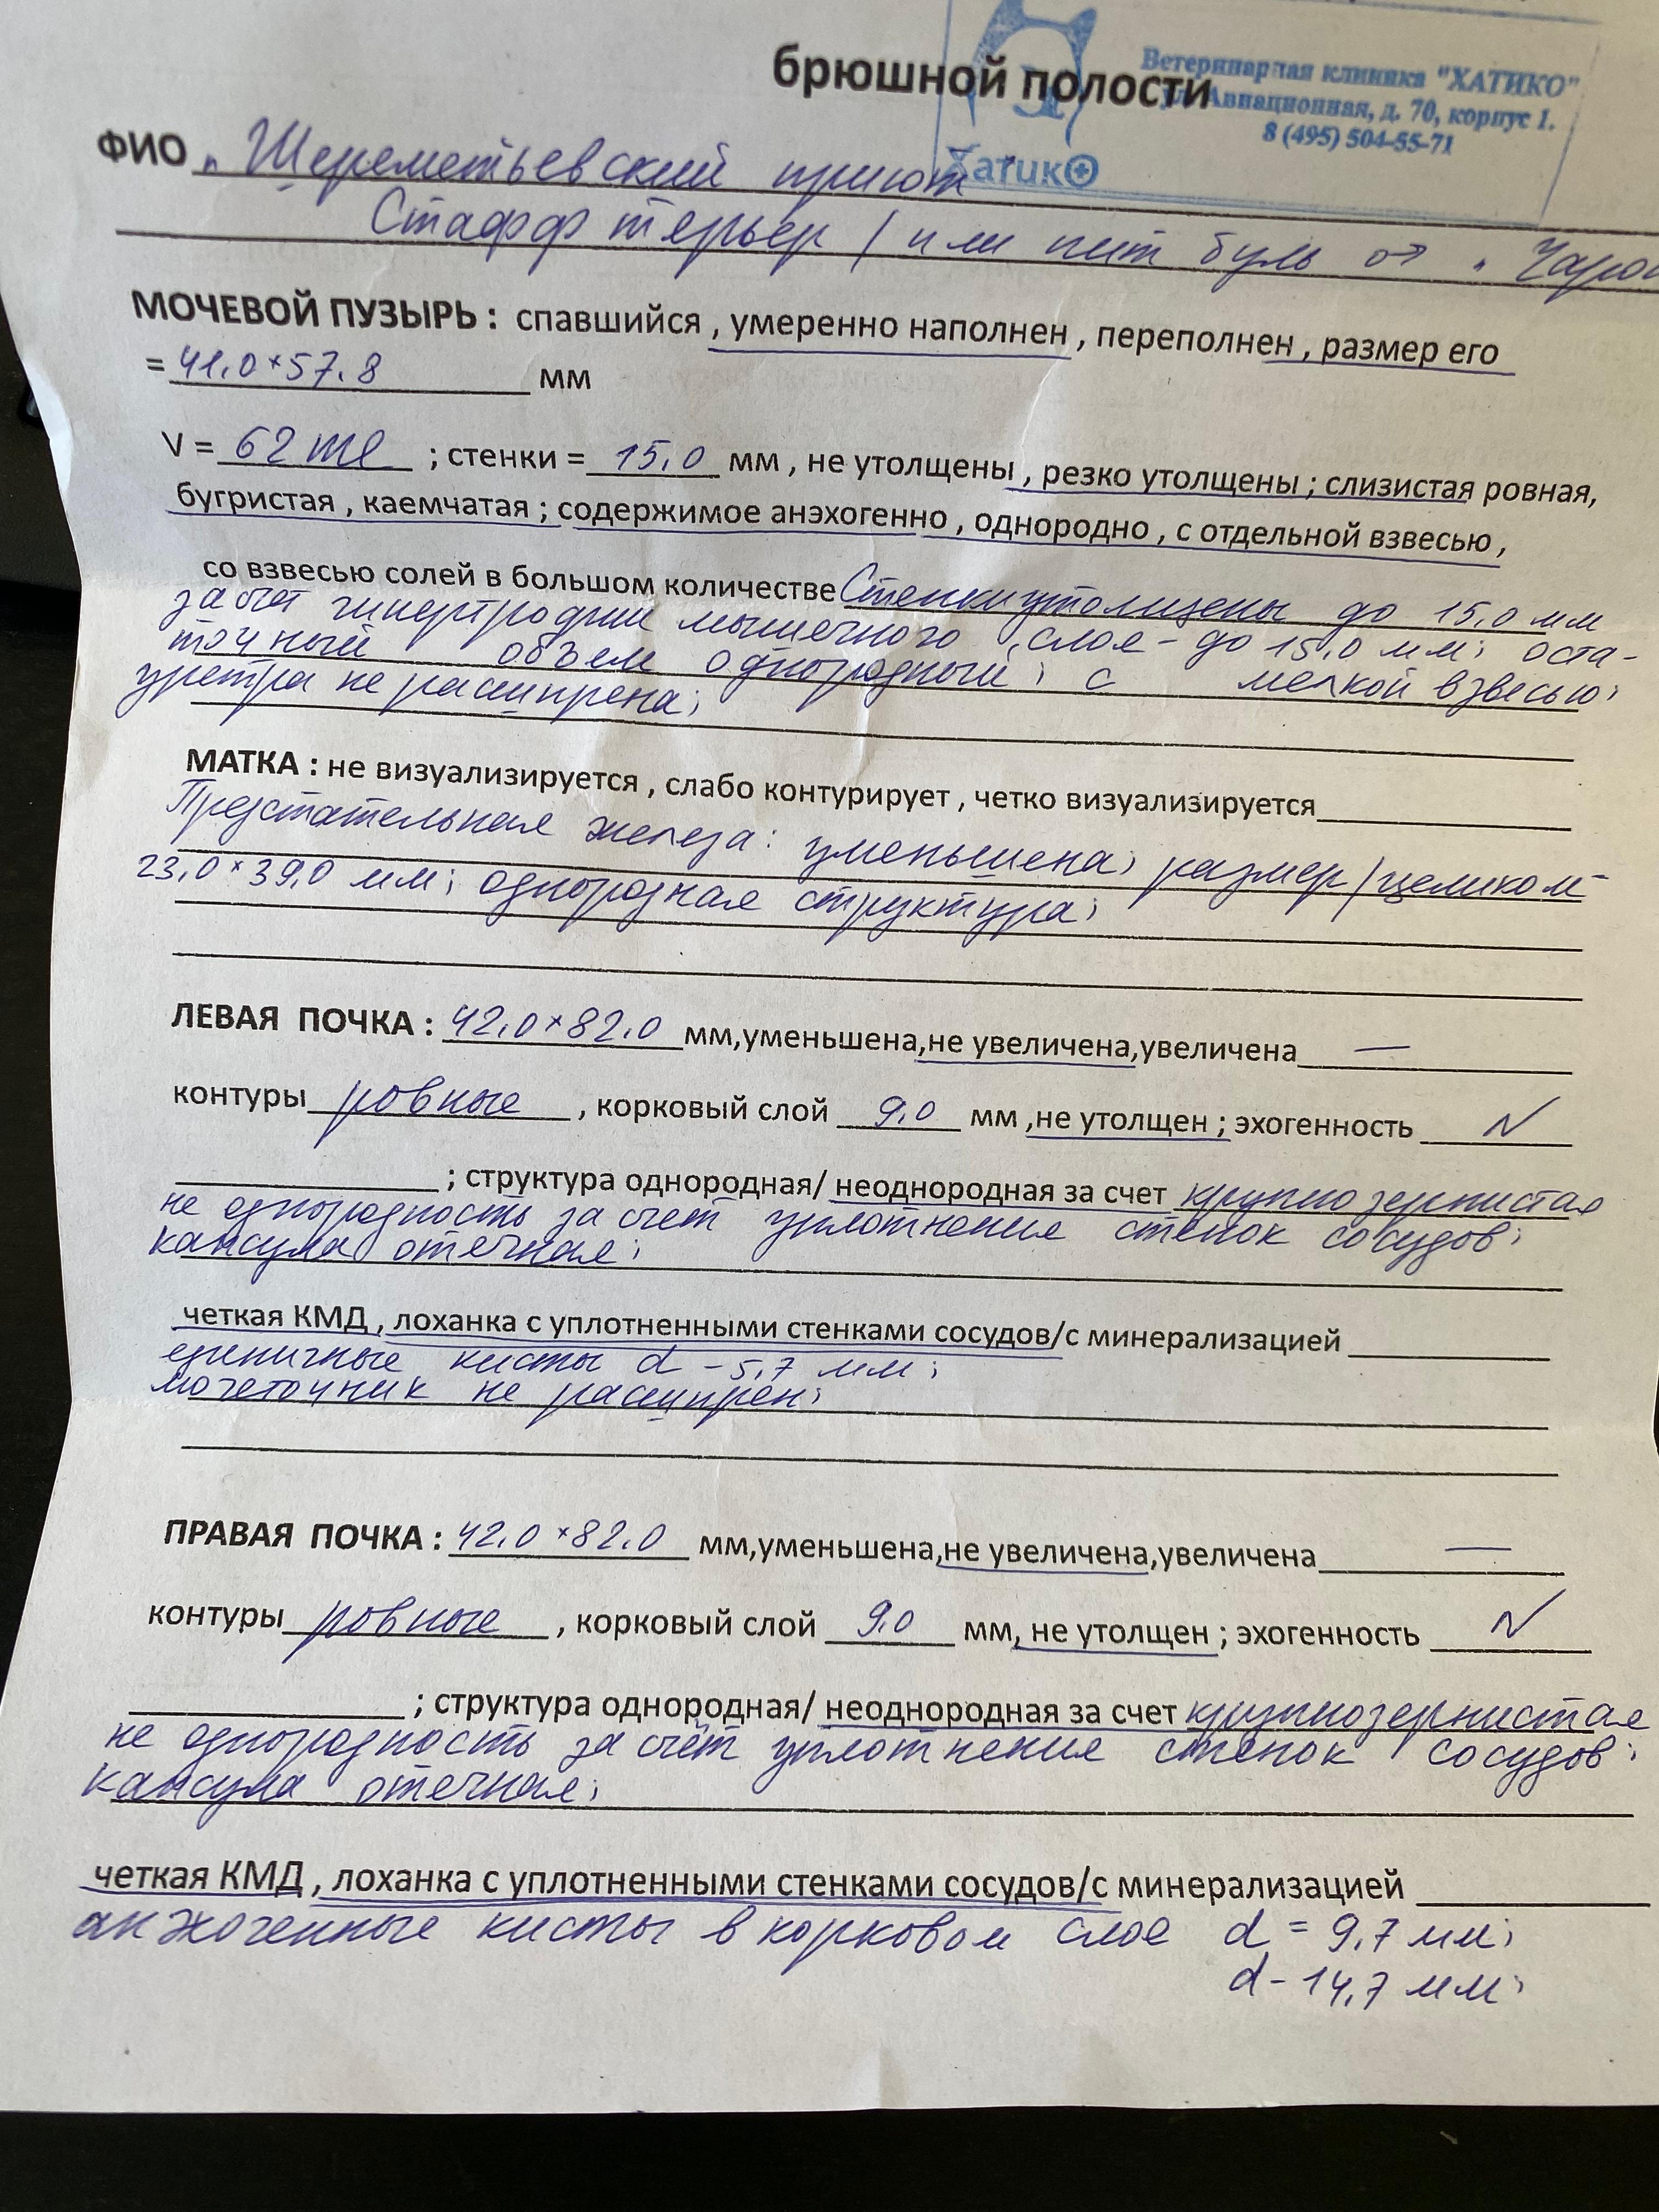 брюшной полости
Ветеринарная клиника "ХАТИКО"
Авиационная, д. 70, корпус 1.
8 (495) 504-55-71
Хатико
ФИО „ Шереметьевский приют"
Стафф терьер / или пит буль ♂
МОЧЕВОЙ ПУЗЫРЬ : спавшийся , умеренно наполнен , переполнен , размер его
= 41,0 × 57,8 мм
V = 62 ml ; стенки = 15,0 мм , не утолщены , резко утолщены ; слизистая ровная,
бугристая , каемчатая ; содержимое анэхогенно , однородно , с отдельной взвесью ,
со взвесью солей в большом количестве Стенки утолщены до 15,0 мм
за счет гипертрофии мышечного слоя - до 15,0 мм; оста-
точный объем однородный; с мелкой взвесью;
уретра не расширена;
МАТКА : не визуализируется , слабо контурирует , четко визуализируется
Предстательная железа: уменьшена; размер / целиком
23,0 × 39,0 мм; однородная структура;
ЛЕВАЯ ПОЧКА : 42,0 × 82,0 мм,уменьшена,не увеличена,увеличена —
контуры ровные , корковый слой 9,0 мм ,не утолщен ; эхогенность N
; структура однородная/ неоднородная за счет крупно зернистая
не однородность за счет уплотнения стенок сосудов;
капсула отечная;
четкая КМД , лоханка с уплотненными стенками сосудов/с минерализацией
единичные кисты d - 5,7 мм;
мочеточник не расширен;
ПРАВАЯ ПОЧКА : 42,0 × 82,0 мм,уменьшена,не увеличена,увеличена —
контуры ровные , корковый слой 9,0 мм, не утолщен ; эхогенность N
; структура однородная/ неоднородная за счет крупнозернистая
не однородность за счёт уплотнения стенок сосудов;
капсула отечная;
четкая КМД , лоханка с уплотненными стенками сосудов/с минерализацией
анэхогенные кисты в корковом слое d = 9,7 мм;
d - 14,7 мм;